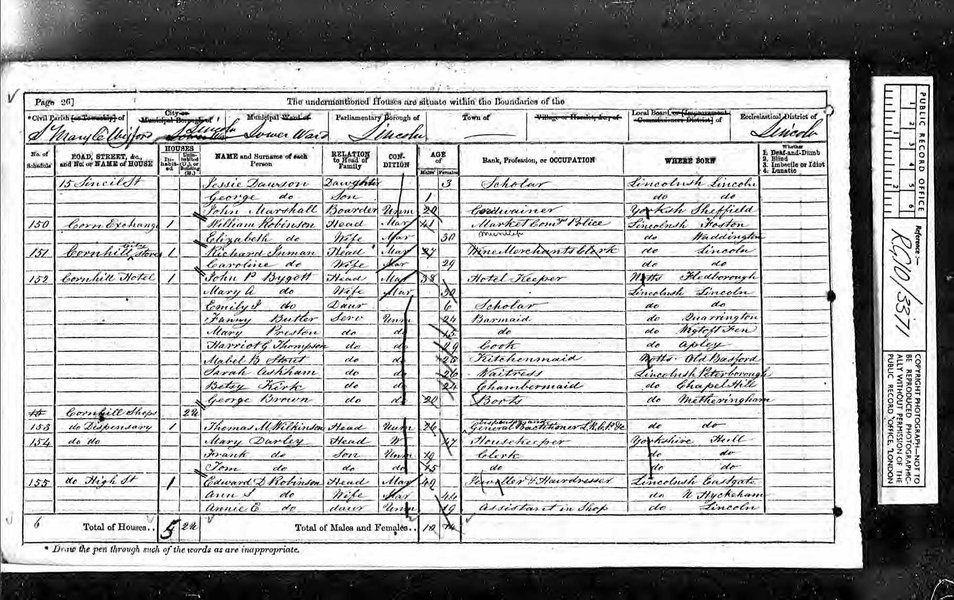 Page 26]
The undermentioned Houses are situate within the Boundaries of the
*Civil Parish [or Township] of
City or Municipal Borough of
Municipal Ward of
Parliamentary Borough of
Town of
Village or Hamlet, &c., of
Local Board, or [Improvement Commissioners District] of
Ecclesiastical District of
St Mary Le Wigford
Lincoln
Lower Ward
Lincoln
Lincoln
No. of Schedule
ROAD, STREET, &c., and No. or NAME of HOUSE
HOUSES
Inhabited
Uninhabited (U.), or Building (B.)
NAME and Surname of each Person
RELATION to Head of Family
CONDITION
AGE of
Males
Females
Rank, Profession, or OCCUPATION
WHERE BORN
Whether
1. Deaf-and-Dumb
2. Blind
3. Imbecile or Idiot
4. Lunatic
15 Sincil St Jessie Dawson Daughter 3 Scholar Lincolnsh Lincoln
George do Son 1 do do
John Marshall Boarder Unm 20 Cordwainer Yorksh Sheffield
150 Corn Exchange 1 William Robinson Head Mar 41 Market Police Lincolnsh Foston
Elizabeth do Wife Mar 30 do Waddington
151 Cornhill Stores 1 Richard Inman Head Mar 27 Wine Merchants Clerk do Lincoln
Caroline do Wife Mar 29 do do
152 Cornhill Hotel 1 John P Bygott Head Mar 38 Hotel Keeper Notts Fledborough
Mary A do Wife Mar 30 Lincolnsh Lincoln
Emily do Daur 6 Scholar do do
Fanny Butler Serv Unm 24 Barmaid do Quarrington
Mary Preston do do 15 do do Wytoft Fen
Harriot G Thompson do do 29 Cook do Apley
Mabel B do do 25 Kitchenmaid Notts Old Basford
Sarah Askham do do 26 Waitress Lincolnsh Peterborough
Betsy Kirk do do 24 Chambermaid do Chapel Hill
George Brown do do 20 Boots do Metheringham
Cornhill Shops 24
153 do Dispensary 1 Thomas M Wilkinson Head Unm 26 General Practitioner do do
154 do do Mary Darley Head W 47 Housekeeper Yorkshire Hull
Frank do Son Unm 19 Clerk do do
Tom do do do 15 do do do
155 do High St 1 Edward D Robinson Head Mar 40 Jeweller & Hairdresser Lincolnsh Eastgate
Ann do Wife Mar 44 do N Hyckeham
Annie E do daur Unm 19 Assistant in Shop do Lincoln
6 Total of Houses.. 5 24 Total of Males and Females.. 12 14
* Draw the pen through such of the words as are inappropriate.
PUBLIC RECORD OFFICE
1 2 3 4 5 6
Reference:-
RG10/3371
COPYRIGHT PHOTOGRAPH—NOT TO BE REPRODUCED PHOTOGRAPHICALLY WITHOUT PERMISSION OF THE PUBLIC RECORD OFFICE, LONDON